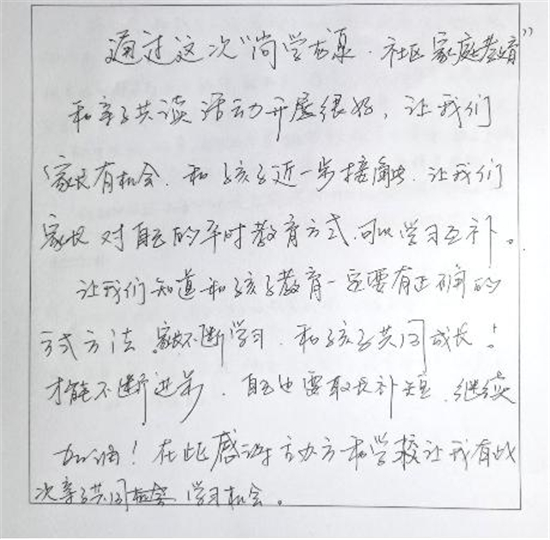 通过这次“尚学龙泉·社区家庭教育”
和亲子共读活动开展很好,让我们
家长有机会.和孩子近一步接触.让我们
家长对自己的平时教育方式.可以学习互补。
让我们知道和孩子教育一定要有正确的
方式方法.家长不断学习.和孩子共同成长!
才能不断进步,自己也要取长补短.继续
加油!在此感谢主办方和学校让我有此
次亲子共同学习机会。